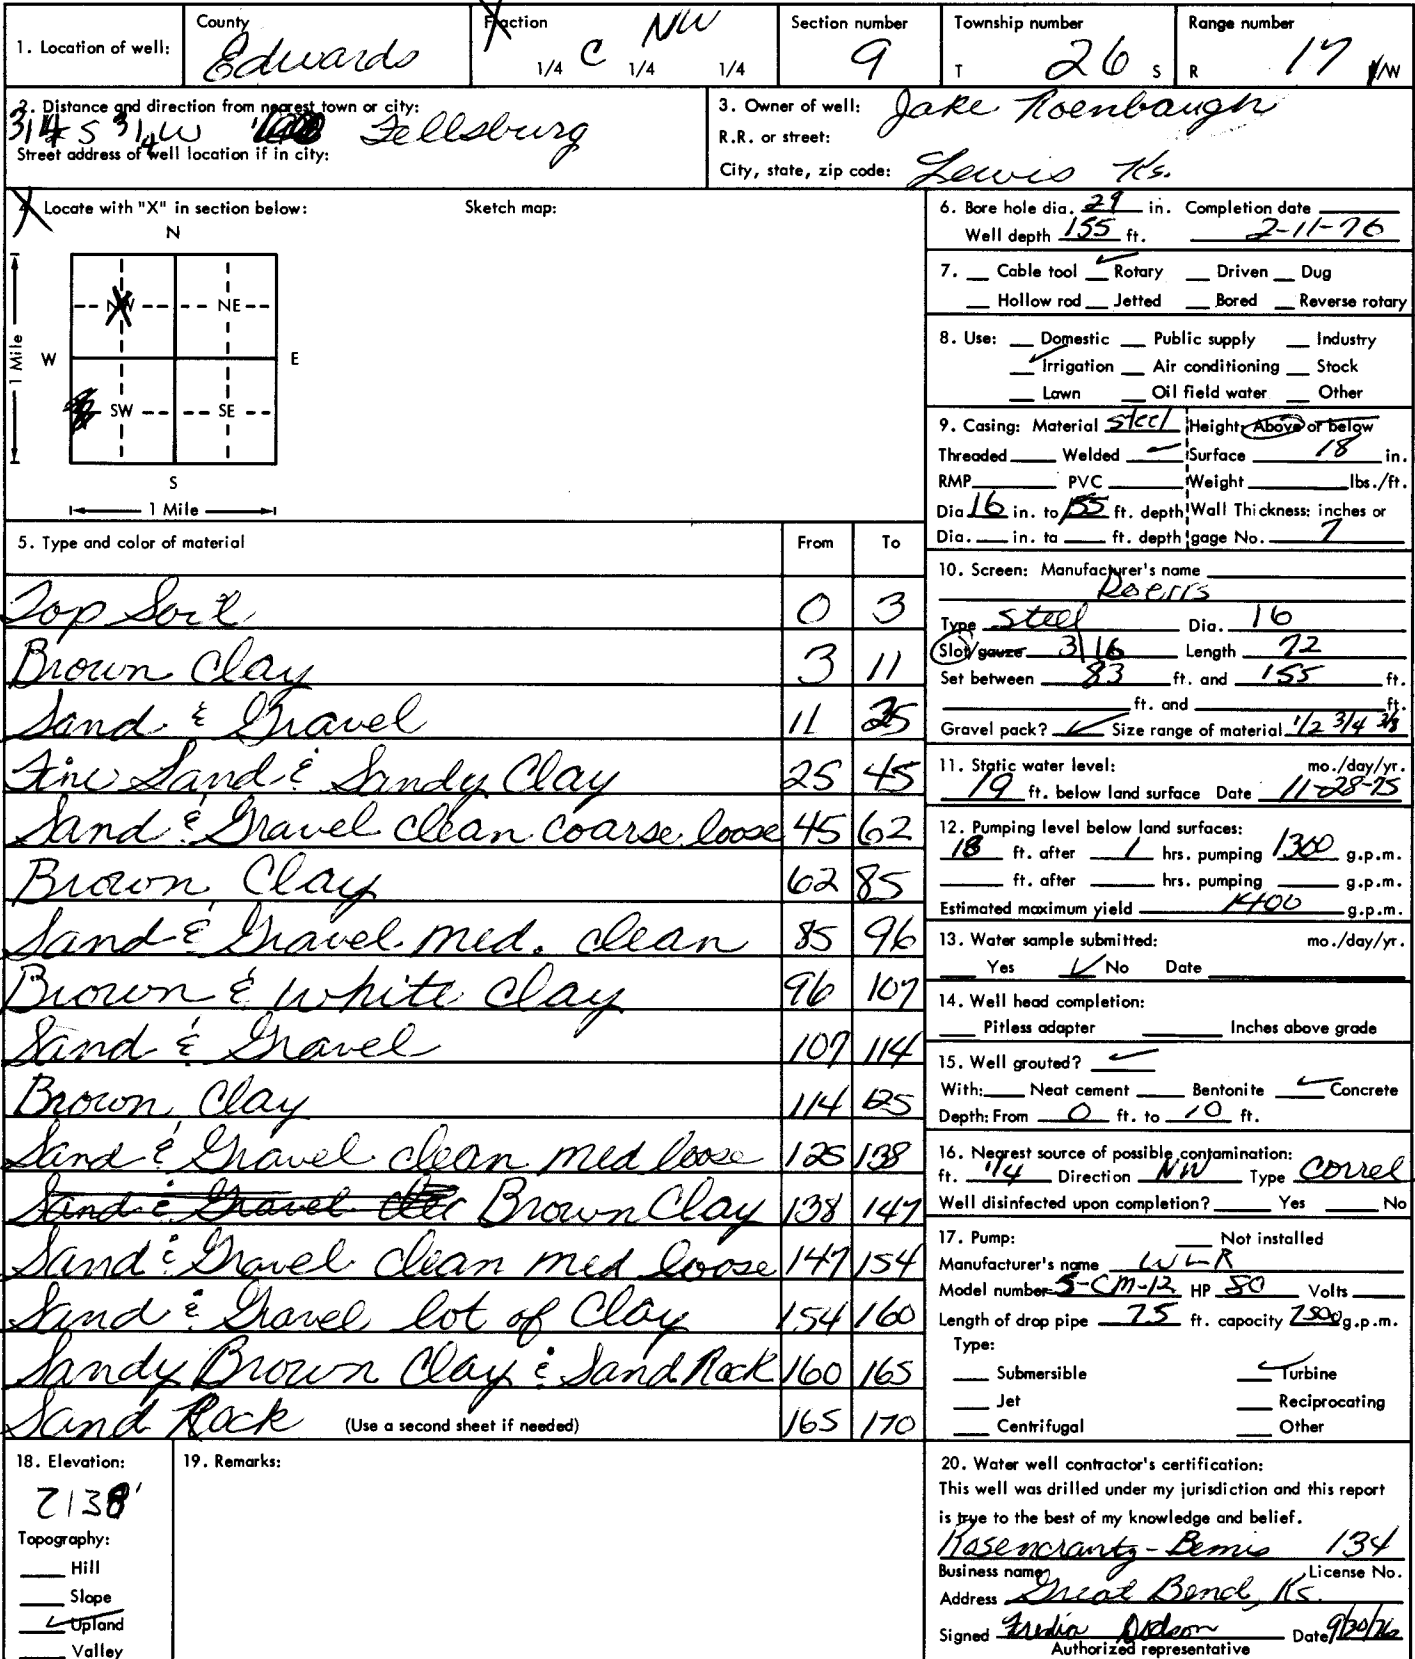 1. Location of well: County Edwards Fraction C NW 1/4 1/4 1/4 Section number 9 Township number T 26 S Range number R 17 /W
2. Distance and direction from nearest town or city: Fellsburg
Street address of well location if in city:
3. Owner of well: Jake Roenbaugh
R.R. or street:
City, state, zip code: Lewis Ks.
4. Locate with "X" in section below: Sketch map:
N
NW NE
W E
1 Mile
SW SE
S
1 Mile
5. Type and color of material From To
Top Soil 0 3
Brown Clay 3 11
Sand & Gravel 11 25
Fine Sand & Sandy Clay 25 45
Sand & Gravel clean coarse loose 45 62
Brown Clay 62 85
Sand & Gravel med. clean 85 96
Brown & white clay 96 107
Sand & Gravel 107 114
Brown Clay 114 125
Sand & Gravel clean med loose 125 138
Sand & Gravel Brown Clay 138 147
Sand & Gravel clean med loose 147 154
Sand & Gravel lot of Clay 154 160
Sandy Brown Clay & Sand Rock 160 165
Sand Rock (Use a second sheet if needed) 165 170
6. Bore hole dia. 29 in. Completion date
Well depth 155 ft. 2-11-76
7. Cable tool ✓ Rotary Driven Dug
Hollow rod Jetted Bored Reverse rotary
8. Use: Domestic Public supply Industry
✓ Irrigation Air conditioning Stock
Lawn Oil field water Other
9. Casing: Material steel Height: Above or below
Threaded Welded ✓ Surface 18 in.
RMP PVC Weight lbs./ft.
Dia 16 in. to 155 ft. depth Wall Thickness: inches or
Dia. in. to ft. depth gage No. 7
10. Screen: Manufacturer's name
Doerrs
Type steel Dia. 16
Slot/gauze 3/16 Length 72
Set between 83 ft. and 155 ft.
ft. and ft.
Gravel pack? ✓ Size range of material 1/2 3/4 3/8
11. Static water level: mo./day/yr.
19 ft. below land surface Date 11-28-75
12. Pumping level below land surfaces:
18 ft. after 1 hrs. pumping 1300 g.p.m.
ft. after hrs. pumping g.p.m.
Estimated maximum yield 1400 g.p.m.
13. Water sample submitted: mo./day/yr.
Yes ✓ No Date
14. Well head completion:
Pitless adapter Inches above grade
15. Well grouted? ✓
With: Neat cement Bentonite ✓ Concrete
Depth: From 0 ft. to 10 ft.
16. Nearest source of possible contamination:
ft. 1/4 Direction NW Type Correl
Well disinfected upon completion? Yes No
17. Pump: Not installed
Manufacturer's name WLR
Model number 5-CM-12 HP 80 Volts
Length of drop pipe 75 ft. capacity g.p.m.
Type:
Submersible ✓ Turbine
Jet Reciprocating
Centrifugal Other
18. Elevation:
2138'
Topography:
Hill
Slope
✓ Upland
Valley
19. Remarks:
20. Water well contractor's certification:
This well was drilled under my jurisdiction and this report
is true to the best of my knowledge and belief.
Rosencrantz-Bemis 134
Business name License No.
Address Great Bend, Ks.
Signed Fredia Dodson Date 9/30/76
Authorized representative